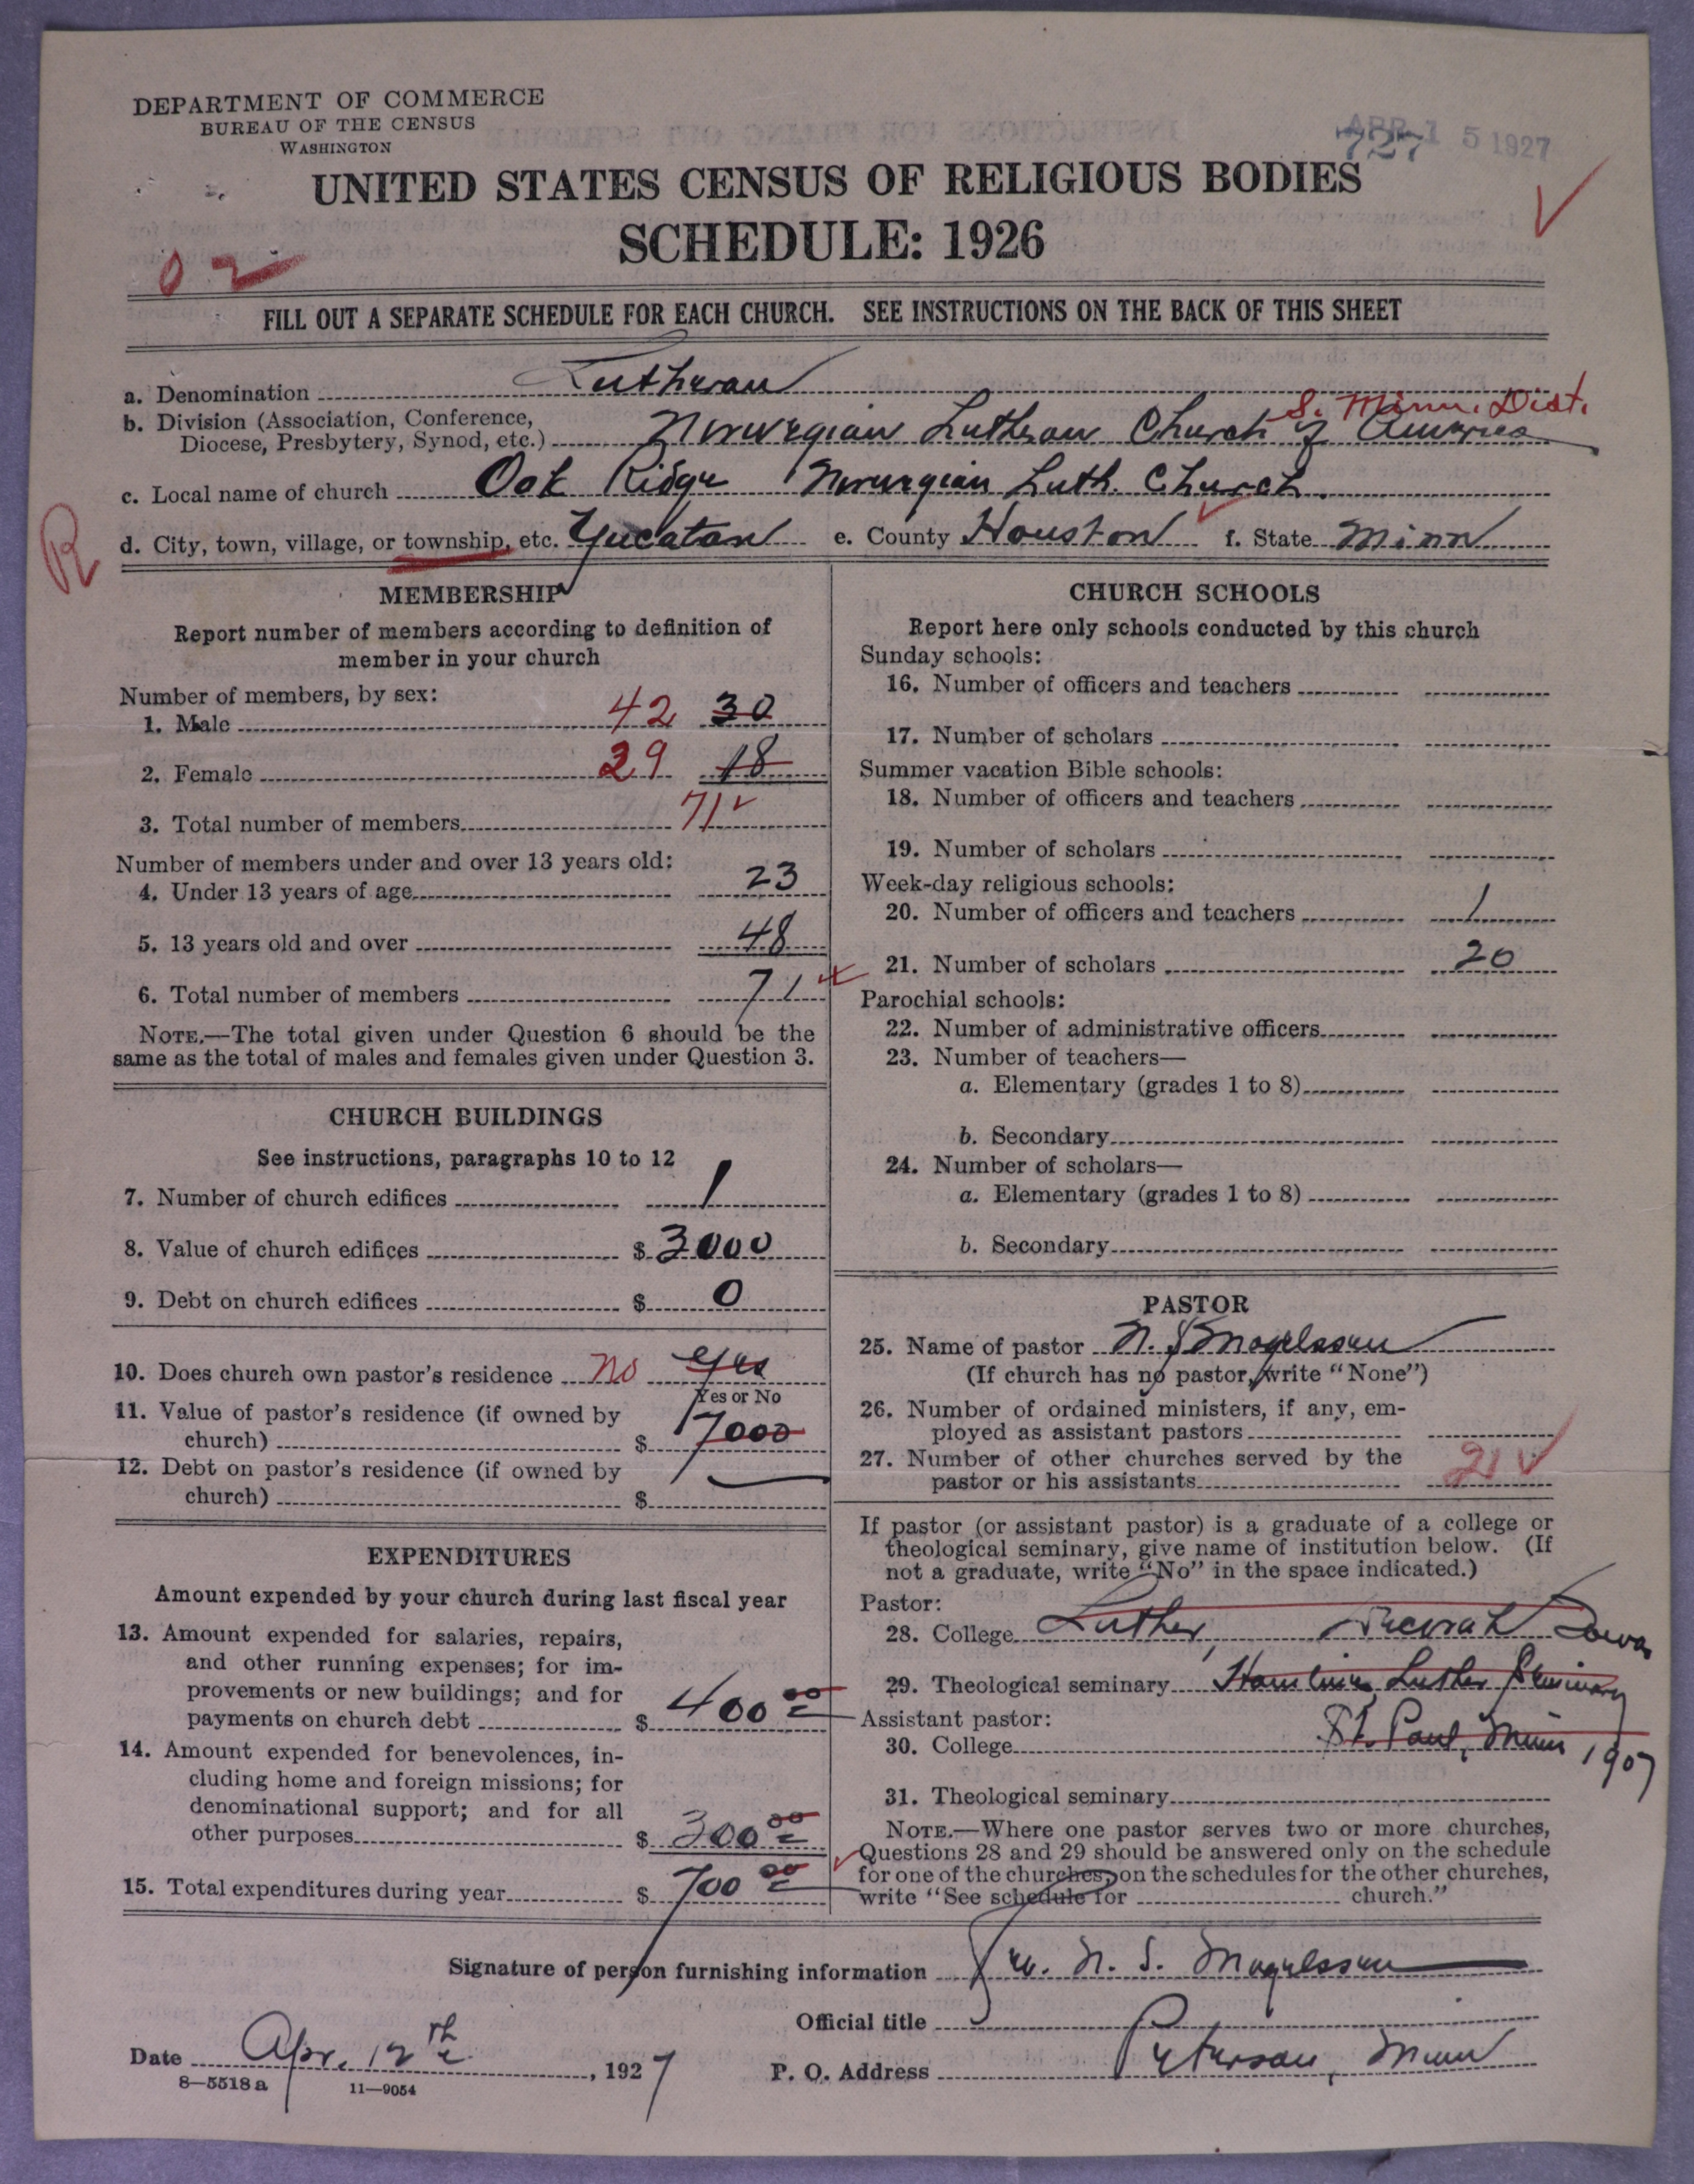 DEPARTMENT OF COMMERCE
BUREAU OF THE CENSUS
WASHINGTON
APR 15 1927
727
UNITED STATES CENSUS OF RELIGIOUS BODIES
SCHEDULE: 1926
0 2
FILL OUT A SEPARATE SCHEDULE FOR EACH CHURCH. SEE INSTRUCTIONS ON THE BACK OF THIS SHEET
a. Denomination Lutheran
S. Minn. Dist.
b. Division (Association, Conference,
Diocese, Presbytery, Synod, etc.) Norwegian Lutheran Church of America
c. Local name of church Oak Ridge Norwegian Luth. Church.
R
d. City, town, village, or township, etc. Yucatan e. County Houston f. State Minn
MEMBERSHIP
Report number of members according to definition of
member in your church
Number of members, by sex:
1. Male 42 30
2. Female 29 18
3. Total number of members 71
Number of members under and over 13 years old:
4. Under 13 years of age 23
5. 13 years old and over 48
6. Total number of members 71
NOTE.—The total given under Question 6 should be the
same as the total of males and females given under Question 3.
CHURCH BUILDINGS
See instructions, paragraphs 10 to 12
7. Number of church edifices 1
8. Value of church edifices $ 3000
9. Debt on church edifices $ 0
10. Does church own pastor's residence no yes
Yes or No
11. Value of pastor's residence (if owned by
church) $ 7000
12. Debt on pastor's residence (if owned by
church) $
EXPENDITURES
Amount expended by your church during last fiscal year
13. Amount expended for salaries, repairs,
and other running expenses; for im-
provements or new buildings; and for
payments on church debt $ 400 00
14. Amount expended for benevolences, in-
cluding home and foreign missions; for
denominational support; and for all
other purposes $ 300 00
15. Total expenditures during year $ 700 00
CHURCH SCHOOLS
Report here only schools conducted by this church
Sunday schools:
16. Number of officers and teachers
17. Number of scholars
Summer vacation Bible schools:
18. Number of officers and teachers
19. Number of scholars
Week-day religious schools:
20. Number of officers and teachers 1
21. Number of scholars 20
Parochial schools:
22. Number of administrative officers
23. Number of teachers—
a. Elementary (grades 1 to 8)
b. Secondary
24. Number of scholars—
a. Elementary (grades 1 to 8)
b. Secondary
PASTOR
25. Name of pastor N. S. Magelssen
(If church has no pastor, write "None")
26. Number of ordained ministers, if any, em-
ployed as assistant pastors
27. Number of other churches served by the
pastor or his assistants 2
If pastor (or assistant pastor) is a graduate of a college or
theological seminary, give name of institution below. (If
not a graduate, write "No" in the space indicated.)
Pastor:
28. College Luther, Decorah Iowa
29. Theological seminary Hamline, Luther Seminary
Assistant pastor: St. Paul, Minn 1907
30. College
31. Theological seminary
NOTE.—Where one pastor serves two or more churches,
Questions 28 and 29 should be answered only on the schedule
for one of the churches; on the schedules for the other churches,
write "See schedule for church."
Signature of person furnishing information Rev. N. S. Magelssen
Official title
Date Apr. 12th, 1927 P. O. Address Peterson, Minn
8—5518 a 11—9054